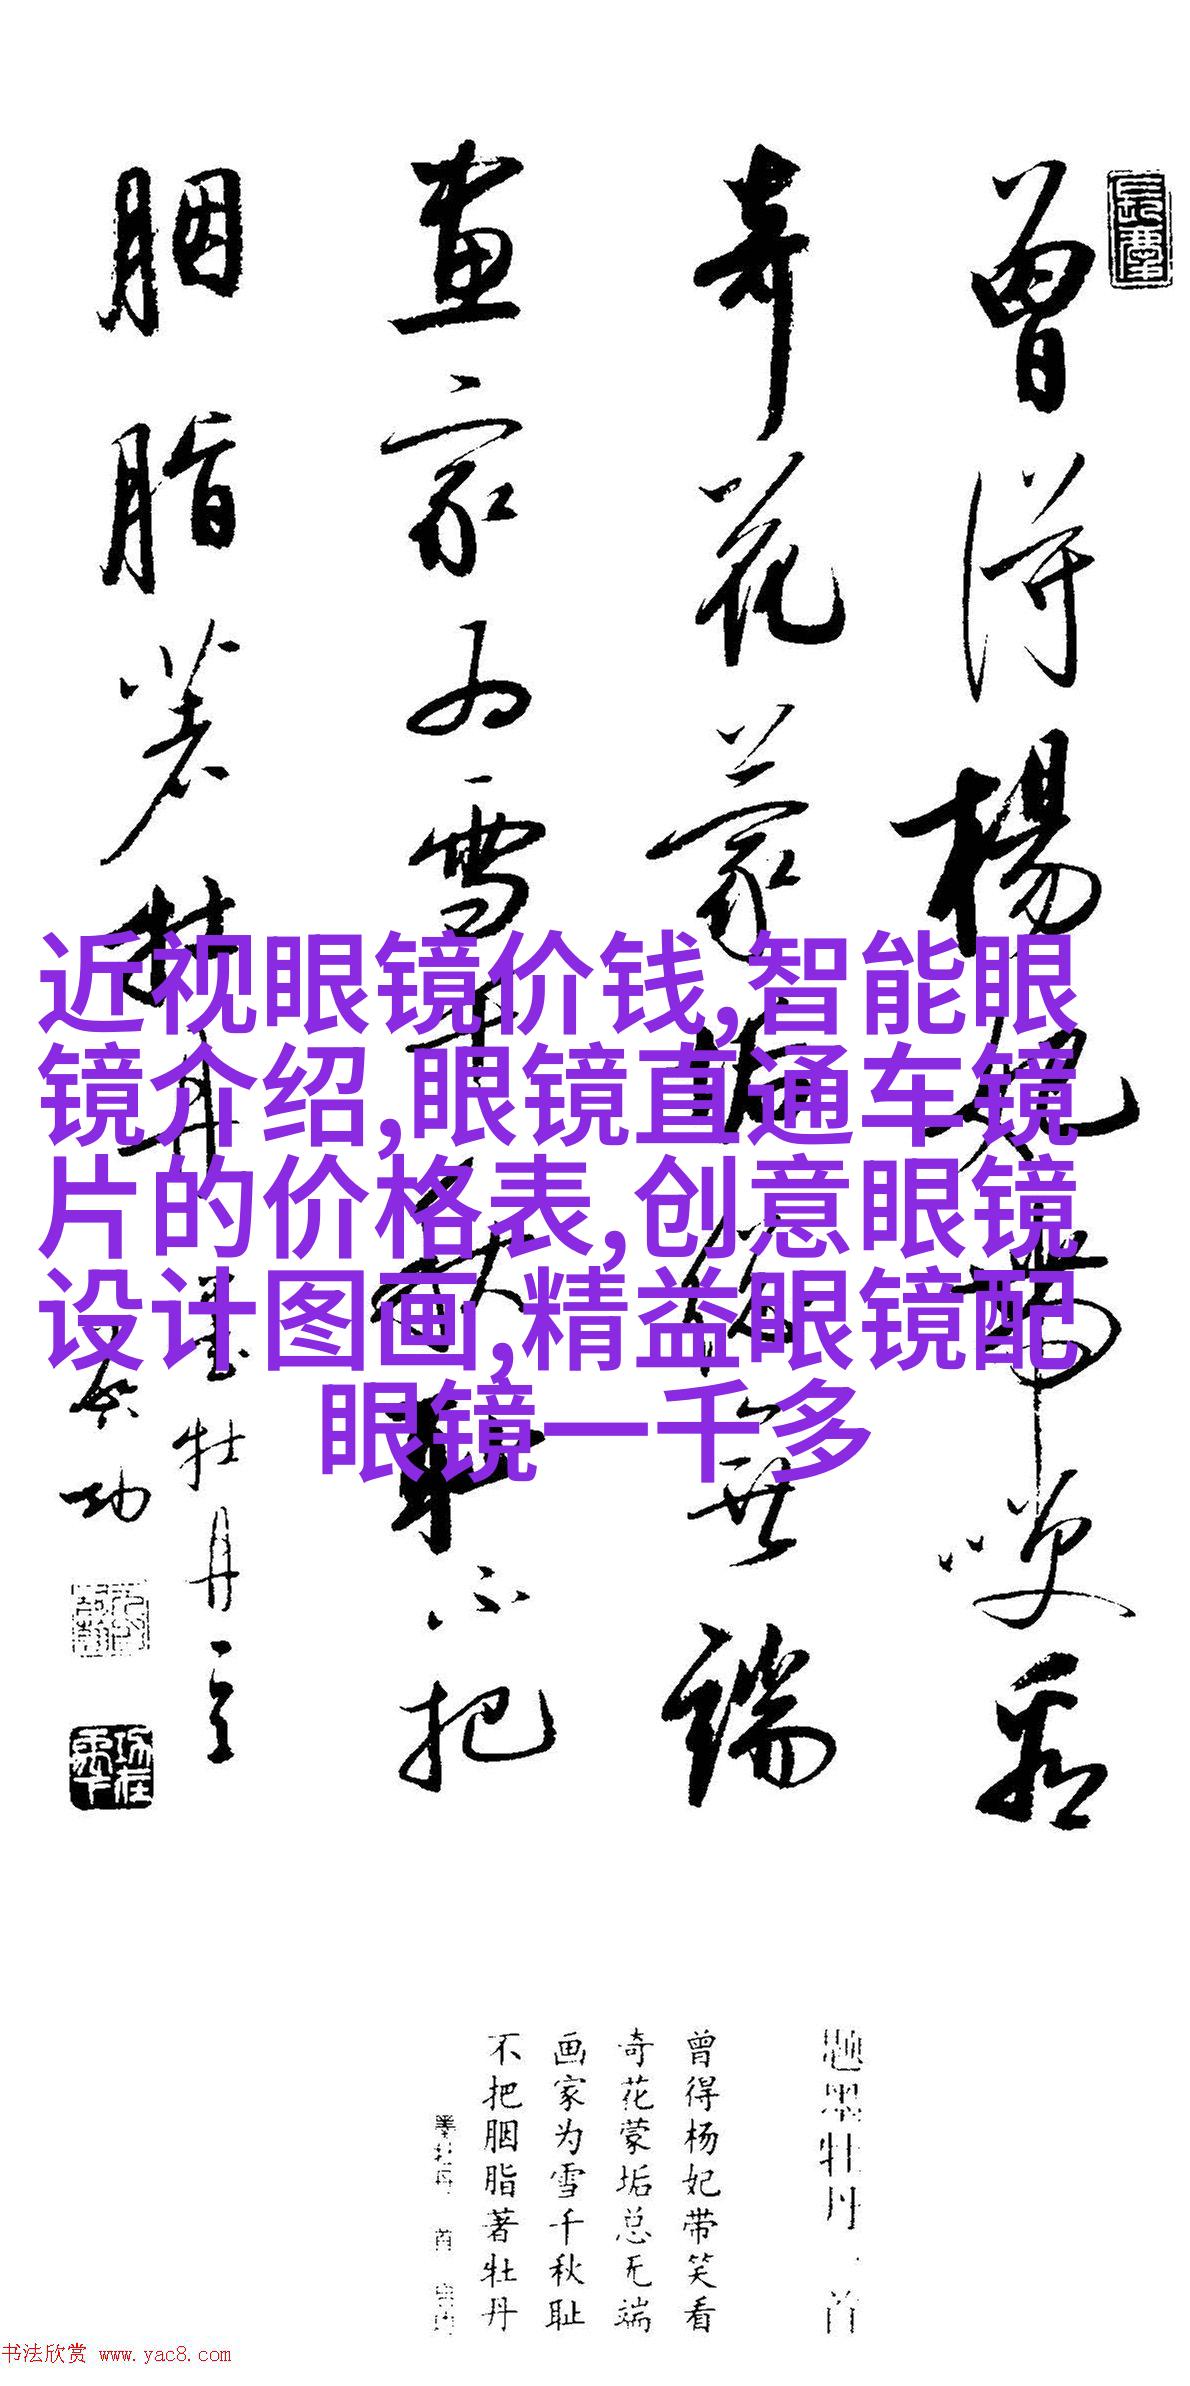 曾得楊妃帶笑看
奇花蒙垢總無端
畫家為雪千秋耻不把
胭脂著牡丹
墨牡丹一首
启功
近视眼镜价钱,智能眼
镜介绍,眼镜直通车镜
片的价格表,创意眼镜
设计图画,精益眼镜配
眼镜一千多
题墨牡丹一首
曾得杨妃带笑看
奇花蒙垢总无端
画家为雪千秋耻
不把胭脂著牡丹
书法欣赏 www.yac8.com